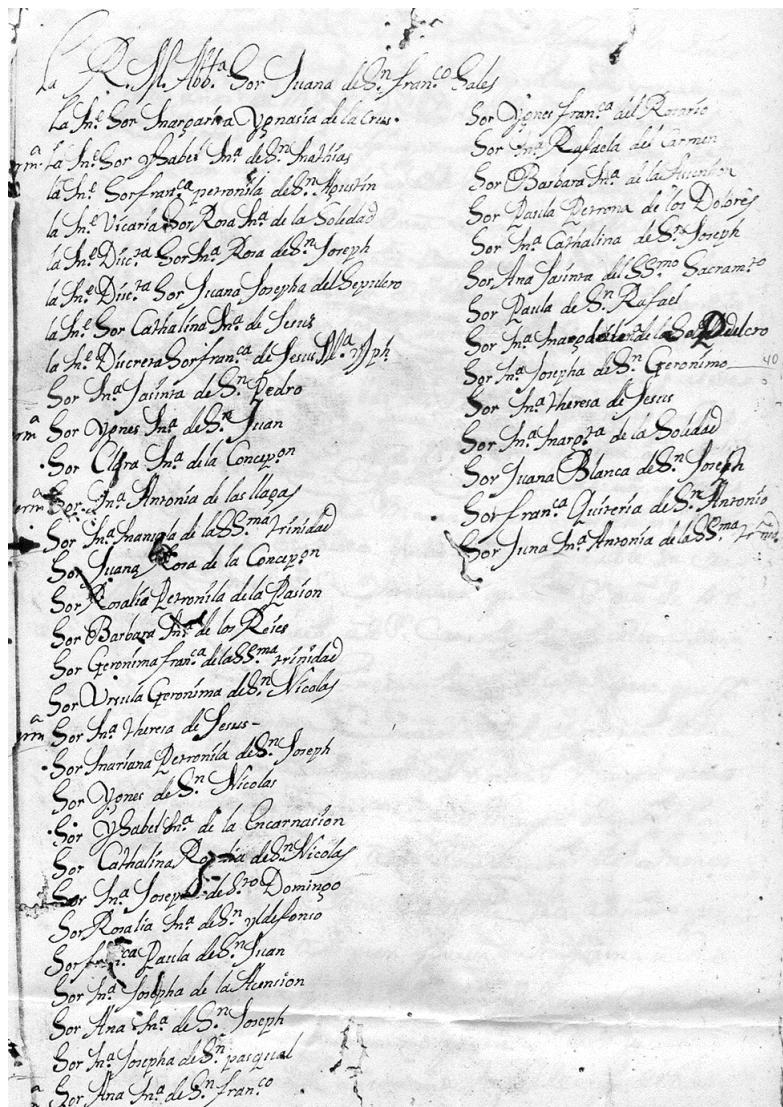 La R. M. Abb.ª Sor Juana de S.n Fran.co Sales
La M.e Sor Margarita Ygnasia de la Crus.
La M.e Sor Ysabel M.a de S.n Mathias
la M.e Sor Fran.ca petronila de S.n Agustin
la M.e Vicaria Sor Rosa M.a de la Soledad
la M.e Disc.ta Sor M.a Rosa de S.n Joseph
la M.e Disc.ta Sor Juana Josepha del Sepulcro
la M.e Sor Cathalina M.a de Jesus
la M.e Discreta Sor fran.ca de Jesus M.a y Jph
Sor M.a Jasinta de S.n Pedro
Sor Ygnes M.a de S.n Juan
Sor Clara M.a de la Concep.on
Sor M.a Antonia de las llagas
Sor M.a de la SS.ma trinidad
Sor Juana Rosa de la Concep.on
Sor Rosalia Petronila de la Pasion
Sor Barbara M.a de los Reies
Sor Geronima fran.ca de la SS.ma trinidad
Sor Ursula Geronima de S.n Nicolas
Sor M.a theresa de Jesus -
Sor Mariana Petronila de S.n Joseph
Sor Ygnes de S.n Nicolas
Sor Ysabel M.a de la Encarnasion
Sor Cathalina Rosalia de S.n Nicolas
Sor M.a Josepha de S.to Domingo
Sor Rosalia M.a de S.n yldefonso
Sor fran.ca Paula de S.n Juan
Sor M.a Josepha de la Asension
Sor Ana M.a de S.n Joseph
Sor M.a Josepha de S.n pasqual
Sor Ana M.a de S.n fran.co
Sor Ygnes fran.ca del Rosario
Sor M.a Rafaela del Carmen
Sor Barbara M.a de la
Sor Paula Petrona de los Dolores
Sor M.a Cathalina de S.n Joseph
Sor Ana Jasinta del SS.mo Sacram.to
Sor Paula de S.n Rafael
Sor M.a de la
Sor M.a Josepha de S.n Geronimo 40
Sor M.a theresa de Jesus
Sor M.a Marg.ta de la Soledad
Sor Juana Blanca de S.n Joseph
Sor fran.ca Quiteria de S.n Antonio
Sor M.a Antonia de la SS.ma